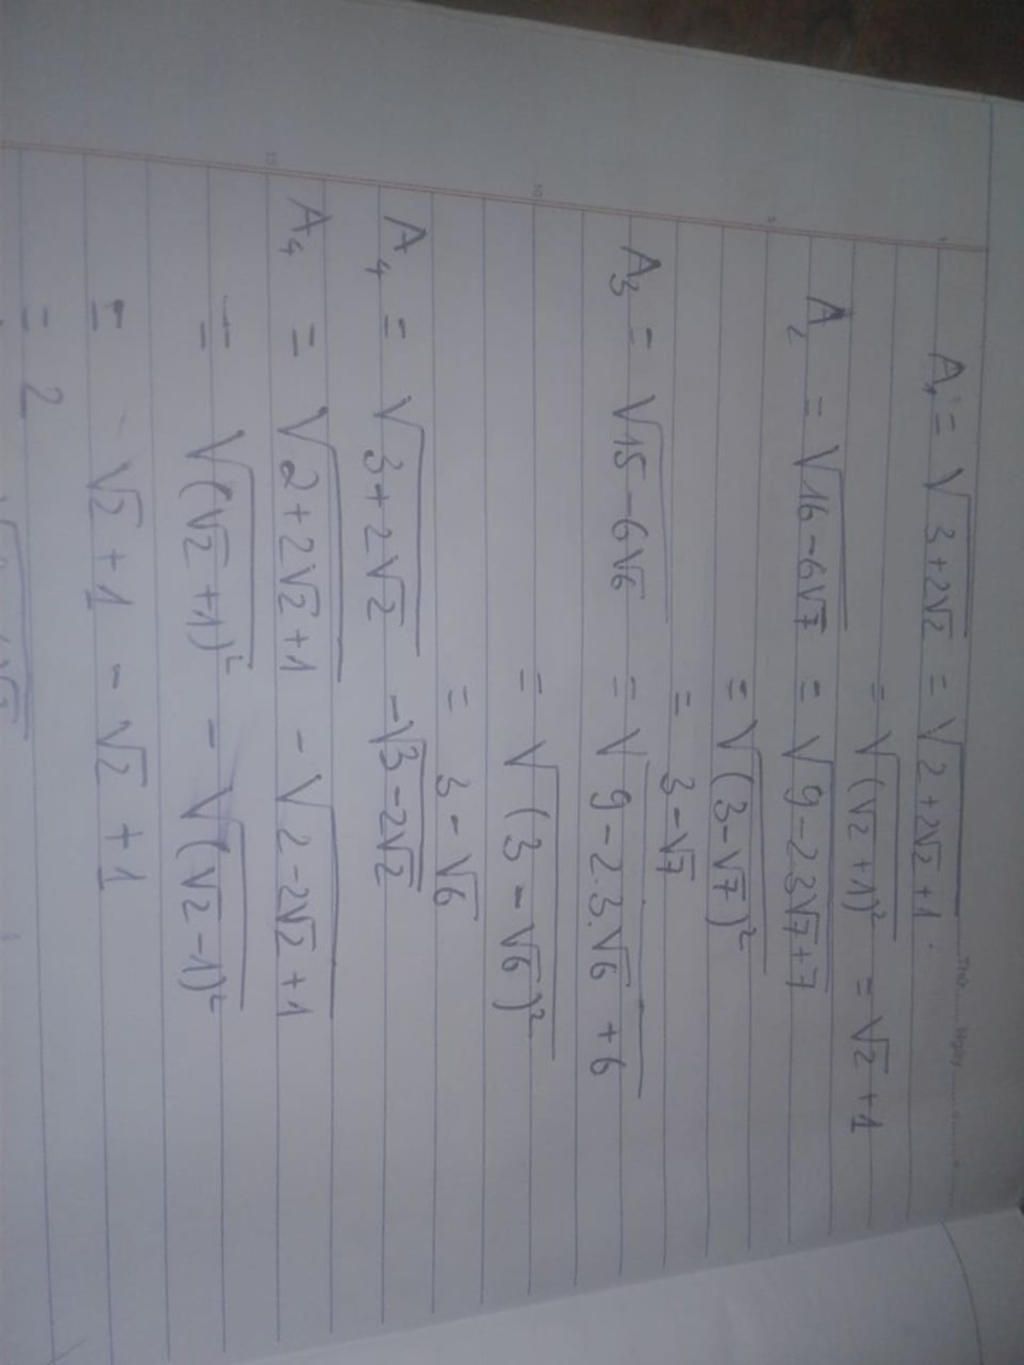 Thứ Ngày
A₁ = √(3+2√2) = √(2+2√2+1)
= √((√2+1)²) = √2+1
A₂ = √(16-6√7) = √(9-2.3√7+7)
= √((3-√7)²)
= 3-√7
A₃ = √(15-6√6) = √(9-2.3.√6+6)
= √((3-√6)²)
= 3-√6
A₄ = √(3+2√2) - √(3-2√2)
A₄ = √(2+2√2+1) - √(2-2√2+1)
= √((√2+1)²) - √((√2-1)²)
= √2+1-√2+1
= 2